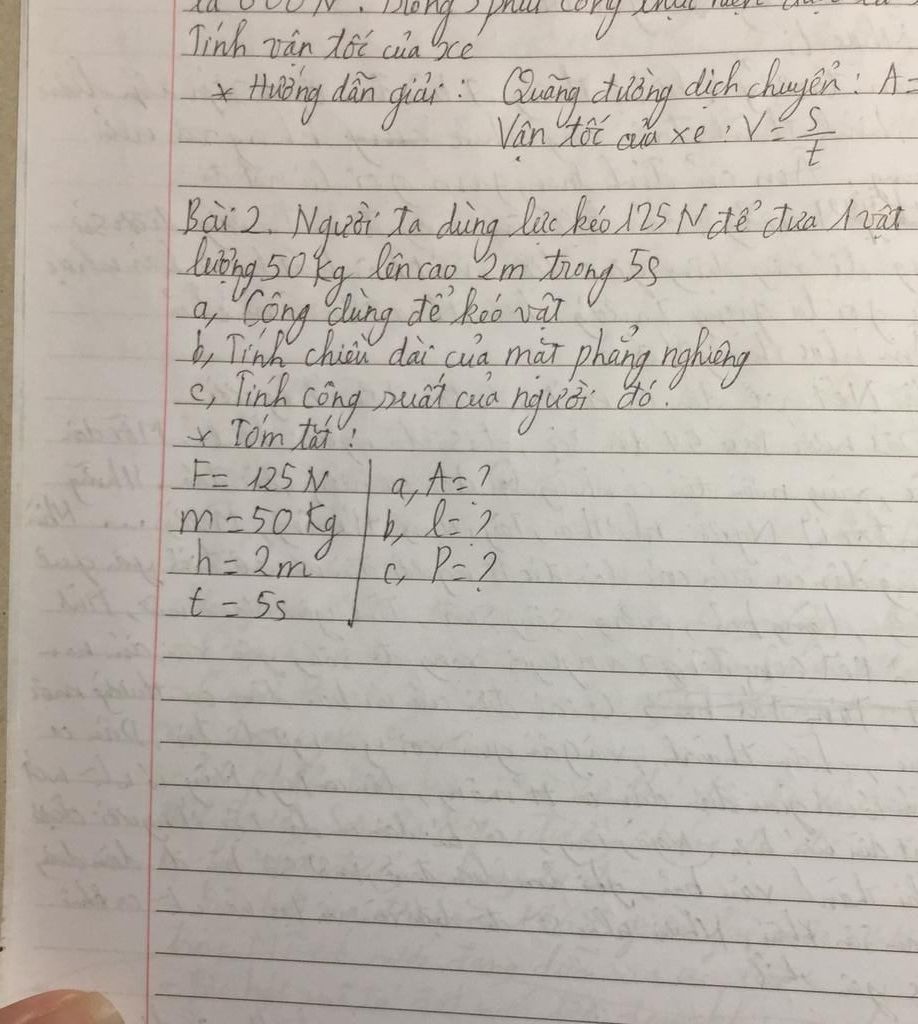 Tính vận tốc của xe
* Hướng dẫn giải : Quãng đường dịch chuyển : A=
Vận tốc của xe : V = s/t
Bài 2. Người ta dùng lực kéo 125 N để đưa 1 vật
lượng 50 kg lên cao 2m trong 5s
a, Công dùng để kéo vật
b, Tính chiều dài của mặt phẳng nghiêng
c, Tính công suất của người đó.
* Tóm tắt :
F = 125 N | a, A = ?
m = 50 Kg | b, l = ?
h = 2m | c, P = ?
t = 5s